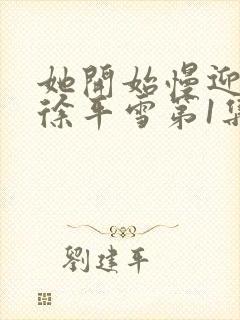 她開始慢迎
徐平雪第1集
劉建平